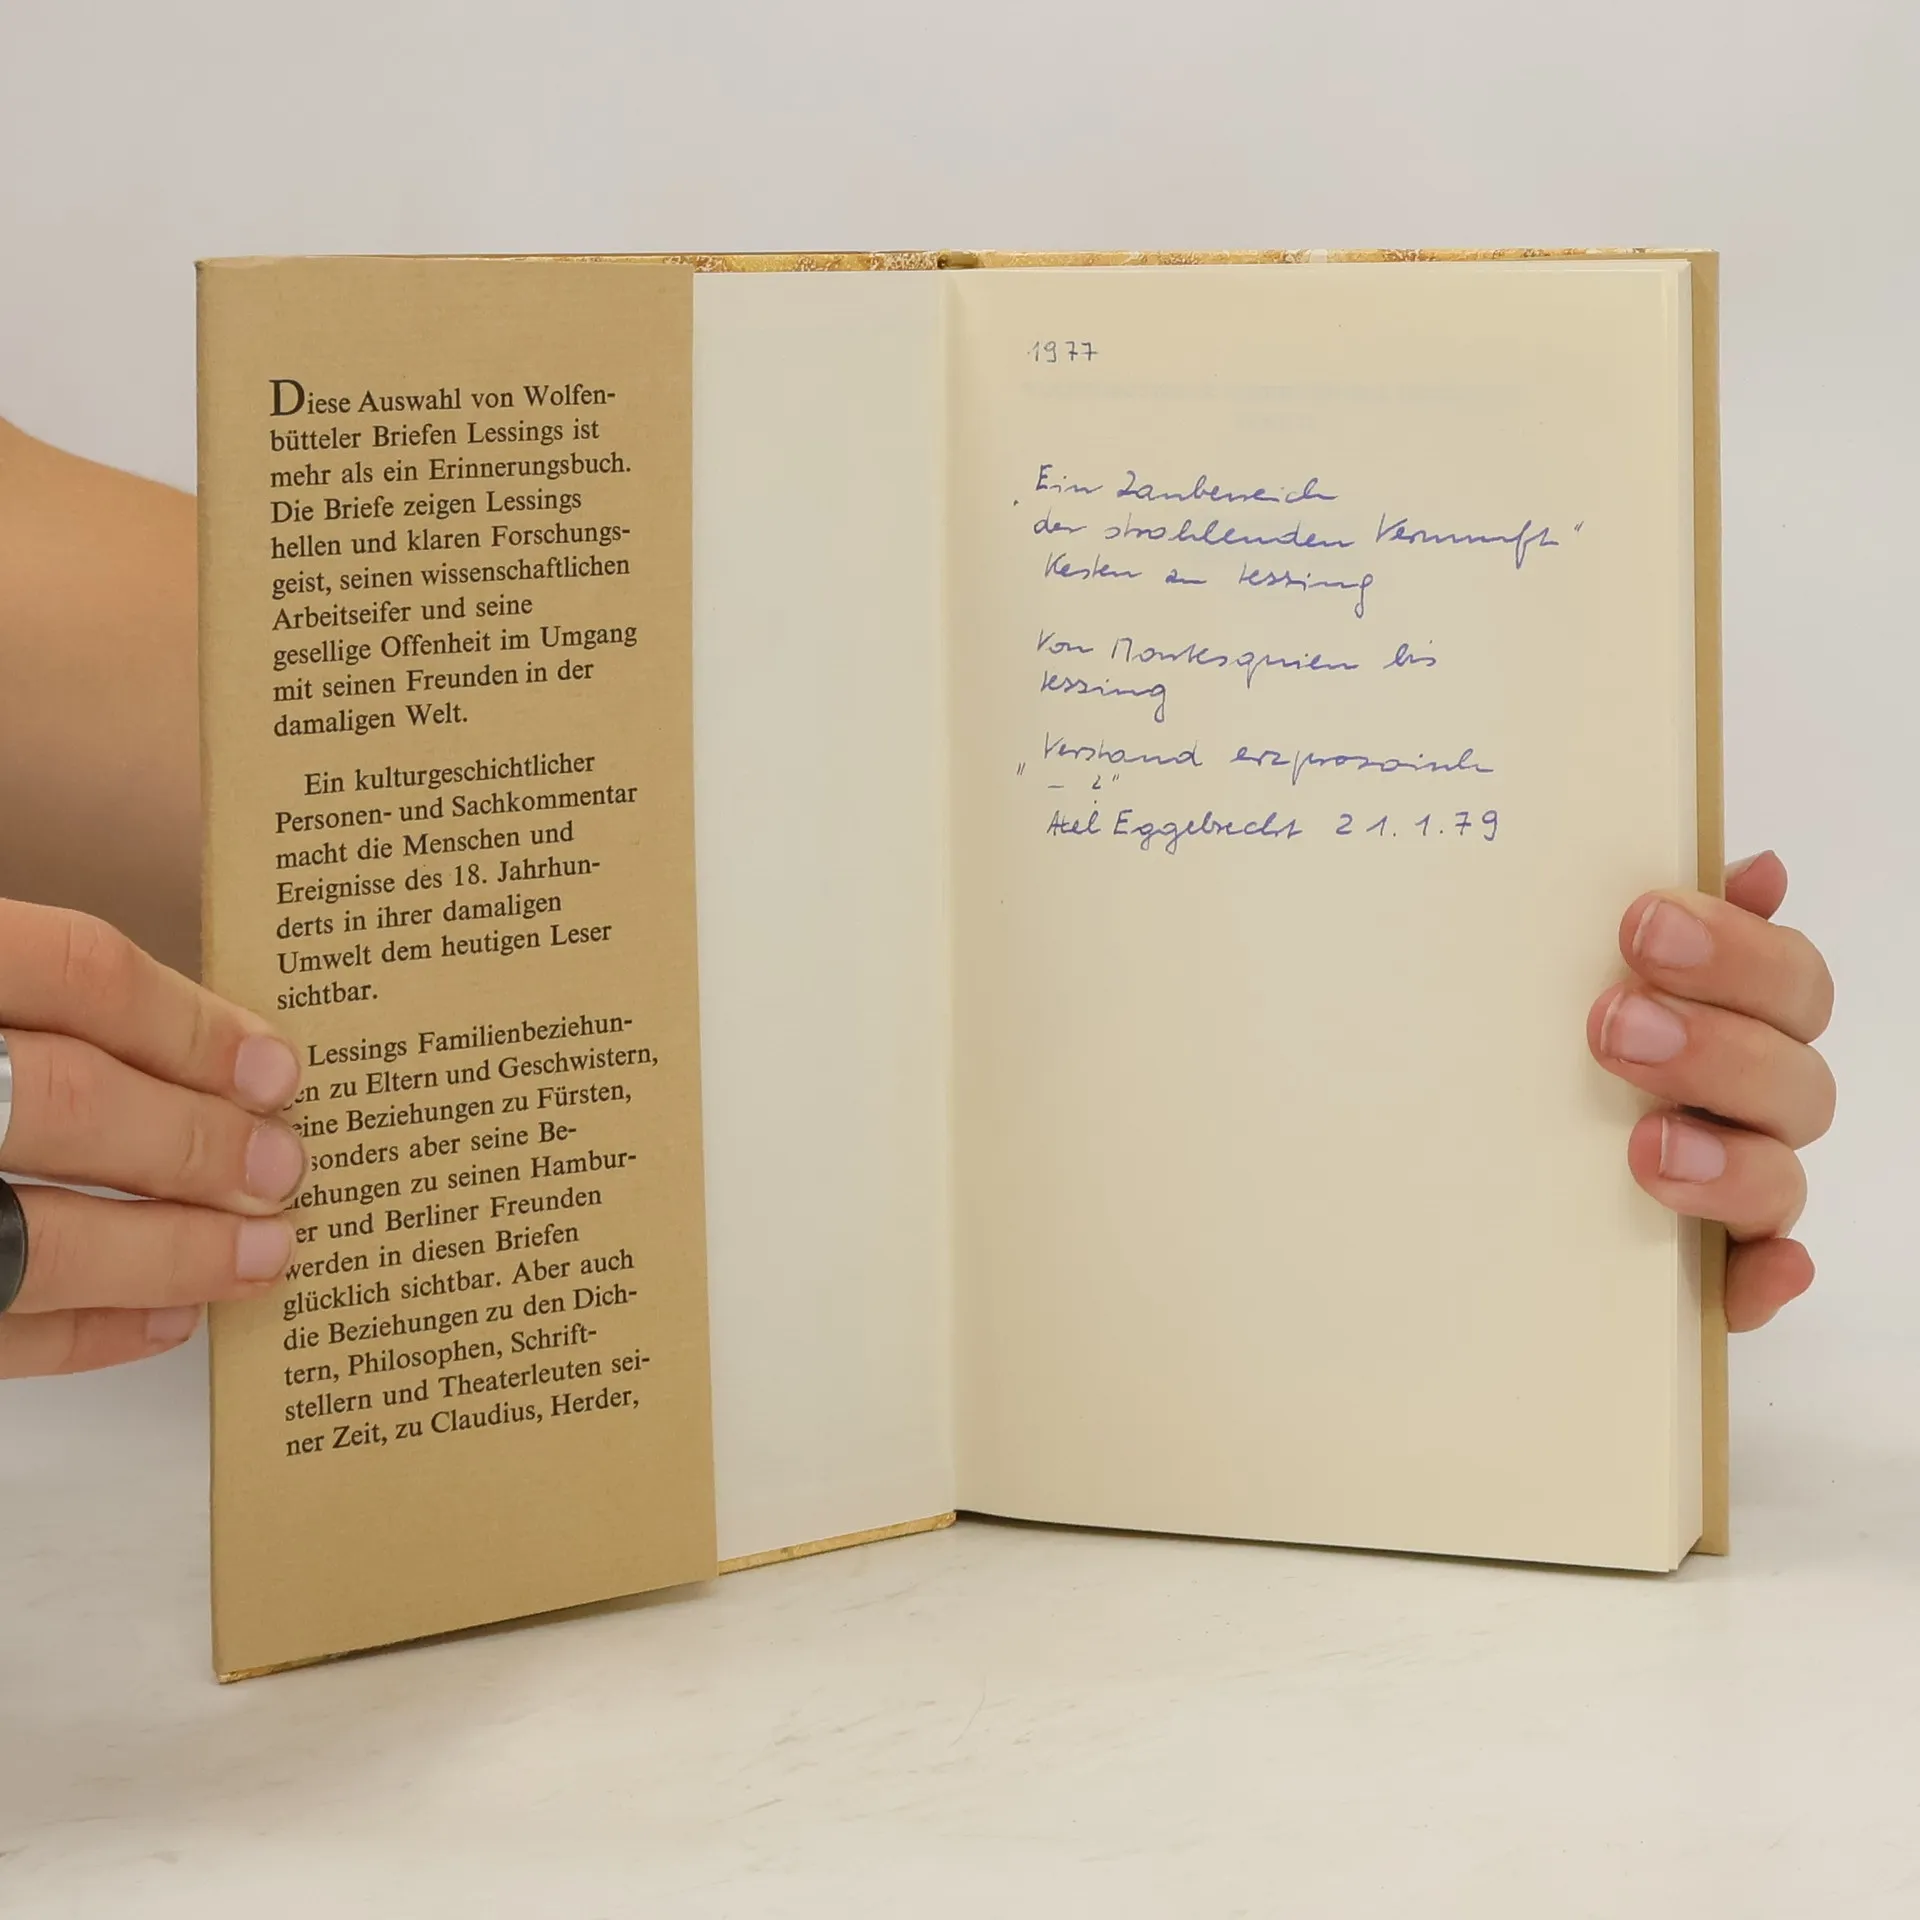 Diese Auswahl von Wolfen-
bütteler Briefen Lessings ist
mehr als ein Erinnerungsbuch.
Die Briefe zeigen Lessings
hellen und klaren Forschungs-
geist, seinen wissenschaftlichen
Arbeitseifer und seine
gesellige Offenheit im Umgang
mit seinen Freunden in der
damaligen Welt.
Ein kulturgeschichtlicher
Personen- und Sachkommentar
macht die Menschen und
Ereignisse des 18. Jahrhun-
derts in ihrer damaligen
Umwelt dem heutigen Leser
sichtbar.
Lessings Familienbeziehun-
en zu Eltern und Geschwistern,
eine Beziehungen zu Fürsten,
sonders aber seine Be-
iehungen zu seinen Hambur-
er und Berliner Freunden
werden in diesen Briefen
glücklich sichtbar. Aber auch
die Beziehungen zu den Dich-
tern, Philosophen, Schrift-
stellern und Theaterleuten sei-
ner Zeit, zu Claudius, Herder,
1977
„Ein Zauberreich
der strahlenden Vernunft"
Kesten zu Lessing
Von Montesquieu bis
Lessing
„Verstand erzprosaisch
– ?"
Axel Eggebrecht 21.1.79